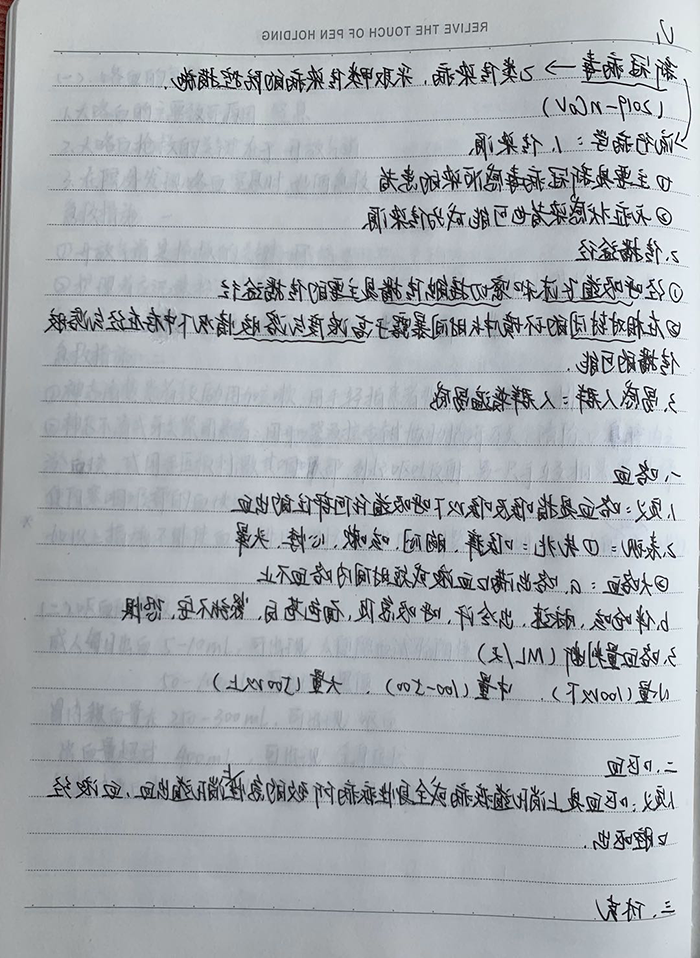 RELIVE THE TOUCH OF PEN HOLDING
新冠病毒 → 乙类传染病，采取甲类传染病的防控措施。
(2019-nCoV)
流行病学：1. 传染源
① 主要是新冠病毒感染的患者
② 无症状感染者也可能成为传染源
2. 传播途径
① 经呼吸道飞沫和密切接触传播是主要的传播途径
② 在相对封闭的环境中长时间暴露于高浓度气溶胶情况下存在经气溶胶
传播的可能.
3. 易感人群：人群普遍易感
一. 咯血
1. 定义：咯血是指喉及喉以下呼吸道任何部位的出血
2. 表现：① 先兆：喉痒、胸闷、咳嗽、心悸、头晕
② 大咯血：a. 咯出满口血液或短时间内咯血不止
b. 伴呛咳、脉速、出冷汗、呼吸急促、面色苍白、紧张不安、恐惧
3. 咯血量判断 (ML/天)
小量 (100以下)、中量 (100-500)、大量 (500以上)
二. 呕血
1. 定义：呕血是上消化道疾病或全身性疾病所致的急性上消化道出血，血液经
口腔呕出.
三.